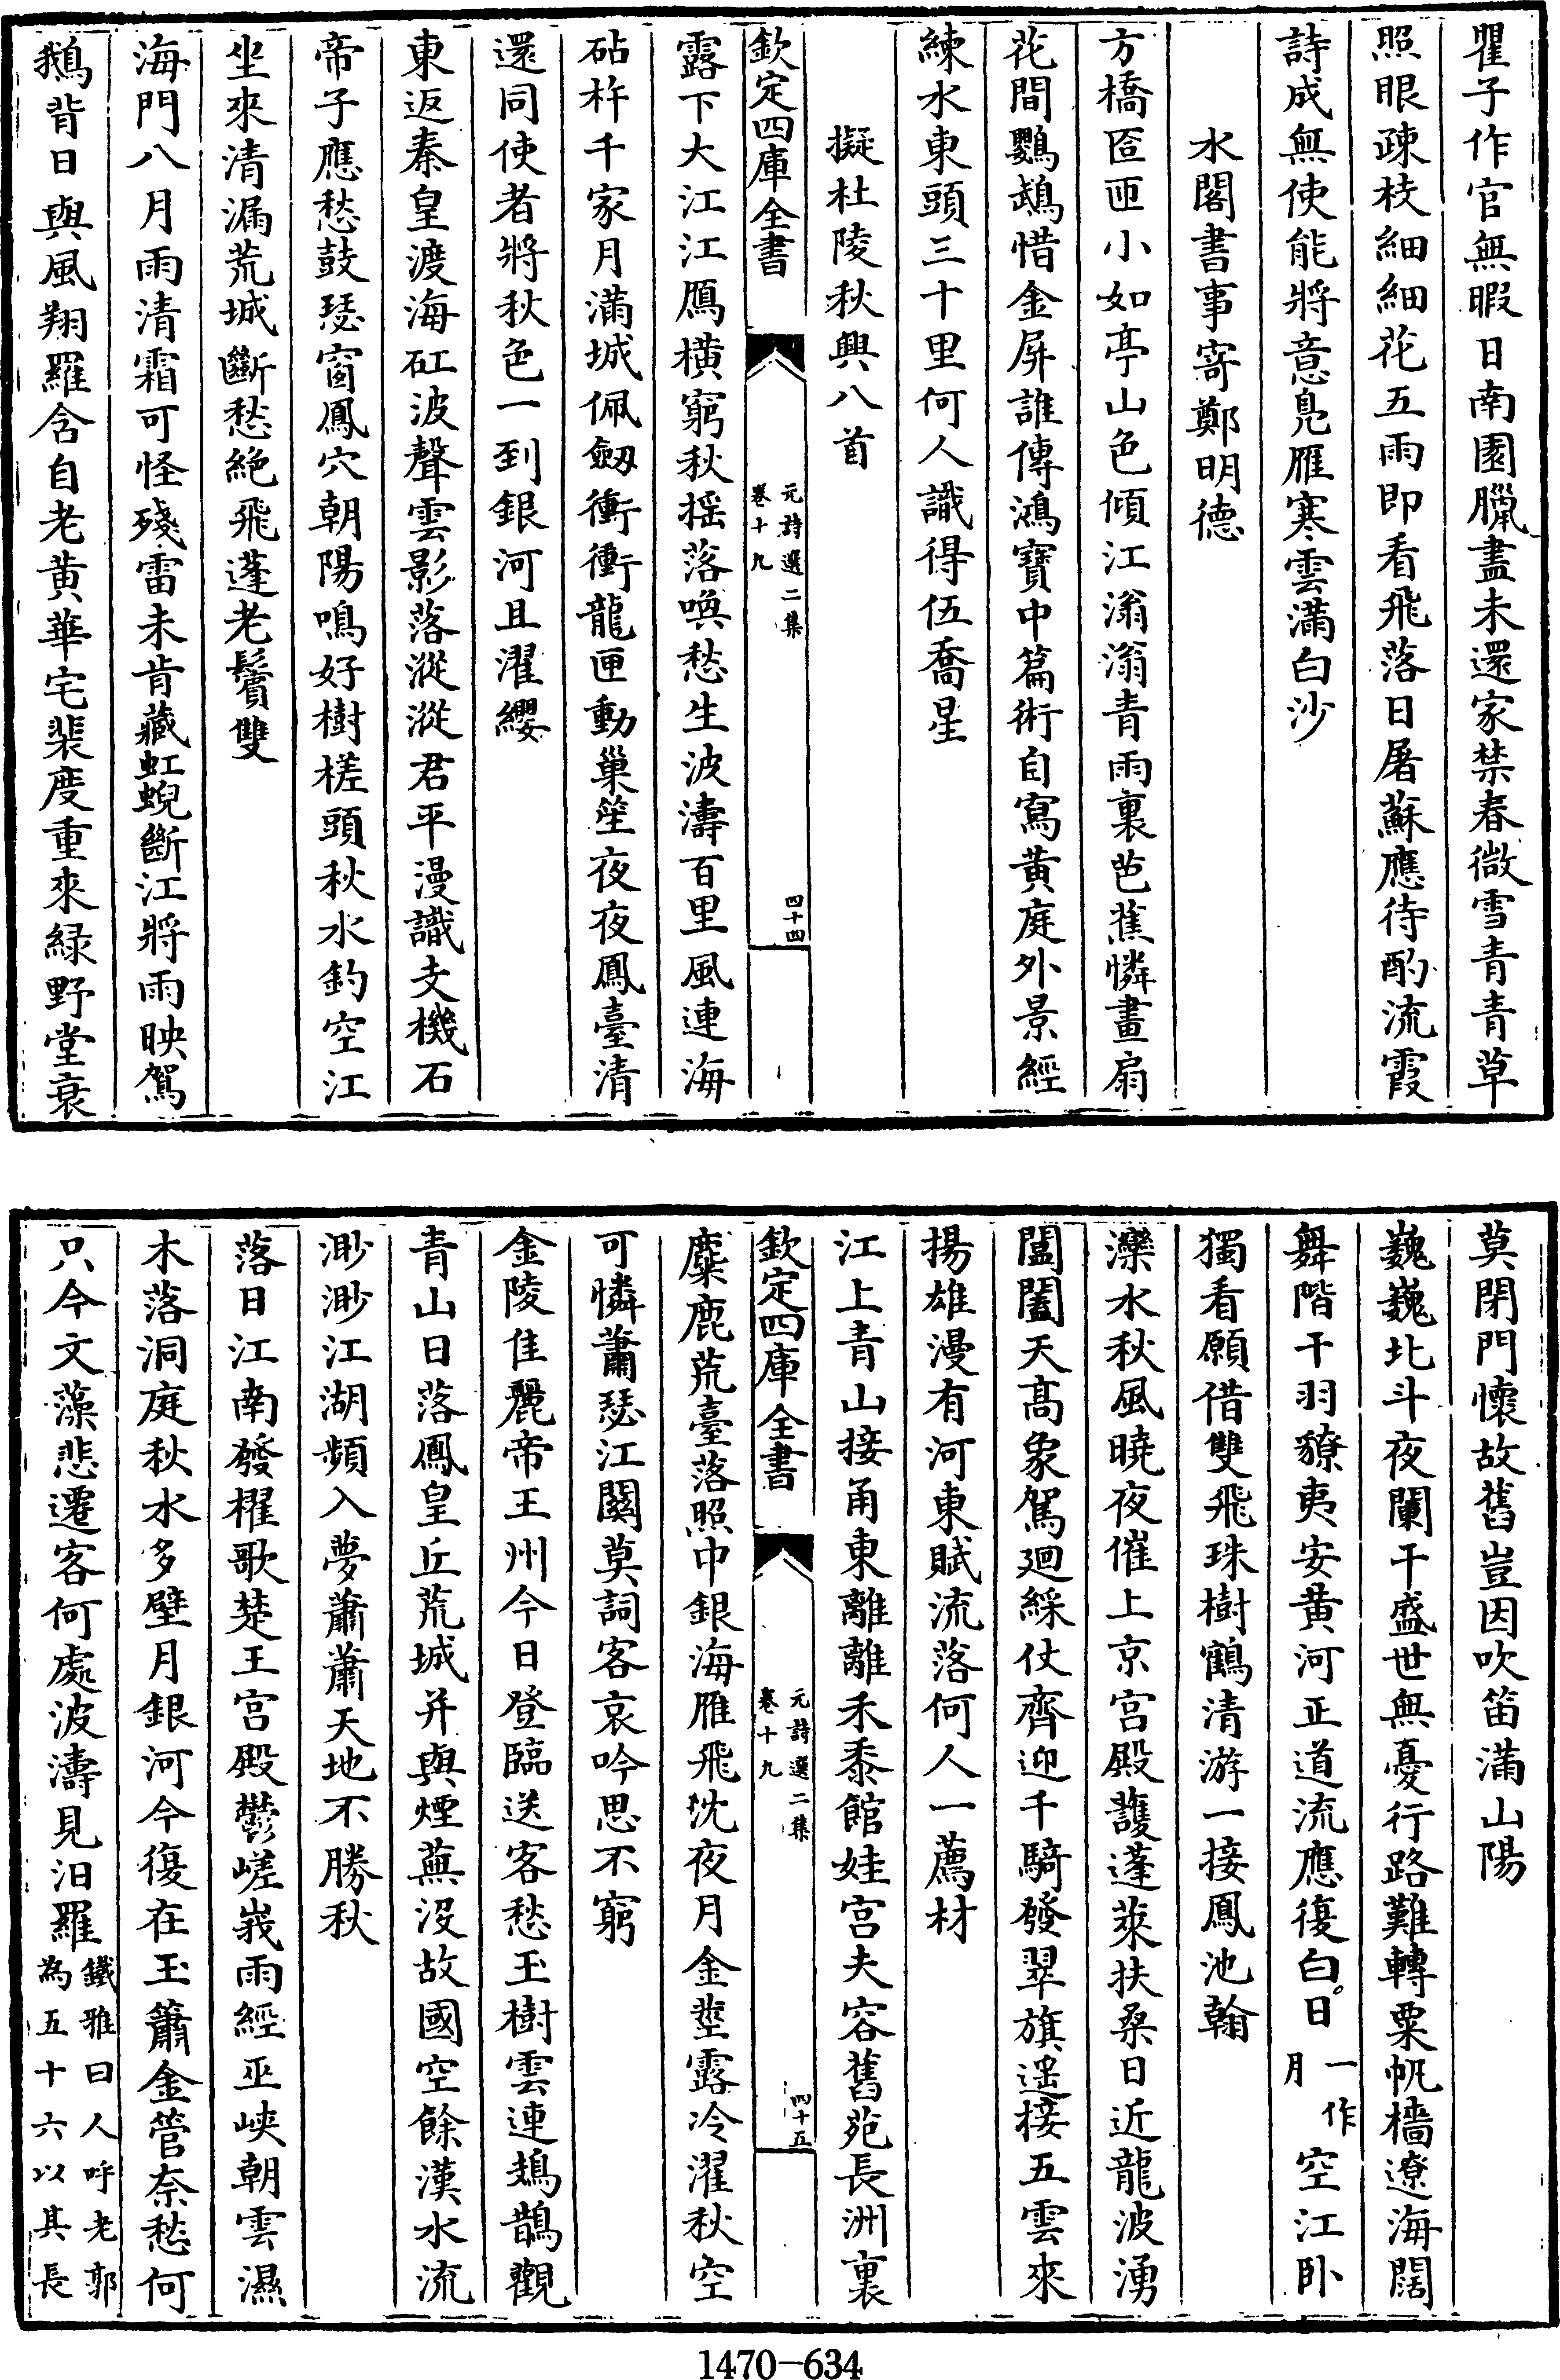 瞿子作官無暇日南園臘盡未還家禁春微雪青青草
照眼疎枝細細花五雨即看飛落日屠蘇應待酌流霞
詩成無使能將意見雁寒雲滿白沙
水閣書事寄鄭明德
方橋匼匝小如亭山色傾江滃滃青雨裏芭蕉憐畫扇
花間鸚鵡惜金屏誰傳鴻寶中篇術自寫黄庭外景經
練水東頭三十里何人識得伍喬星
擬杜陵秋興八首
欽定四庫全書
元詩選二集
卷十九
四十四
露下大江江鴈横窮秋摇落喚愁生波濤百里風連海
砧杵千家月滿城佩劔衝衝龍匣動巢笙夜夜鳳臺清
還同使者將秋色一到銀河且濯纓
東返秦皇渡海矼波聲雲影落漎漎君平漫識支機石
帝子應愁鼓瑟窗鳳穴朝陽鳴好樹槎頭秋水釣空江
坐來清漏荒城斷愁絶飛蓬老鬢雙
海門八月雨清霜可怪殘雷未肯藏虹蜺斷江將雨映駕
鵝背日與風翔羅含自老黄華宅裴度重來緑野堂衰
莫閉門懷故舊豈因吹笛滿山陽
巍巍北斗夜闌干盛世無憂行路難轉粟帆檣遼海闊
舞階干羽獠夷安黄河正道流應復白日一作月空江卧
獨看願借雙飛珠樹鶴清游一接鳳池翰
灤水秋風曉夜催上京宫殿護蓬萊扶桑日近龍波湧
閶闔天高象駕廻綵仗齊迎千騎發翠旗遥接五雲來
揚雄漫有河東賦流落何人一薦材
江上青山接甬東離離禾黍館娃宫夫容舊苑長洲裏
欽定四庫全書
元詩選二集
卷十九
四十五
麋鹿荒臺落照中銀海雁飛沈夜月金莖露冷濯秋空
可憐蕭瑟江關莫詞客哀吟思不窮
金陵佳麗帝王州今日登臨送客愁玉樹雲連鳷鵲觀
青山日落鳳皇丘荒城并與煙蕪没故國空餘漢水流
渺渺江湖頻入夢蕭蕭天地不勝秋
落日江南發櫂歌楚王宫殿鬱嵯峩雨經巫峽朝雲濕
木落洞庭秋水多壁月銀河今復在玉簫金管奈愁何
只今文藻悲遷客何處波濤見汨羅鐵雅曰人呼老郭為五十六以其長
1470-634